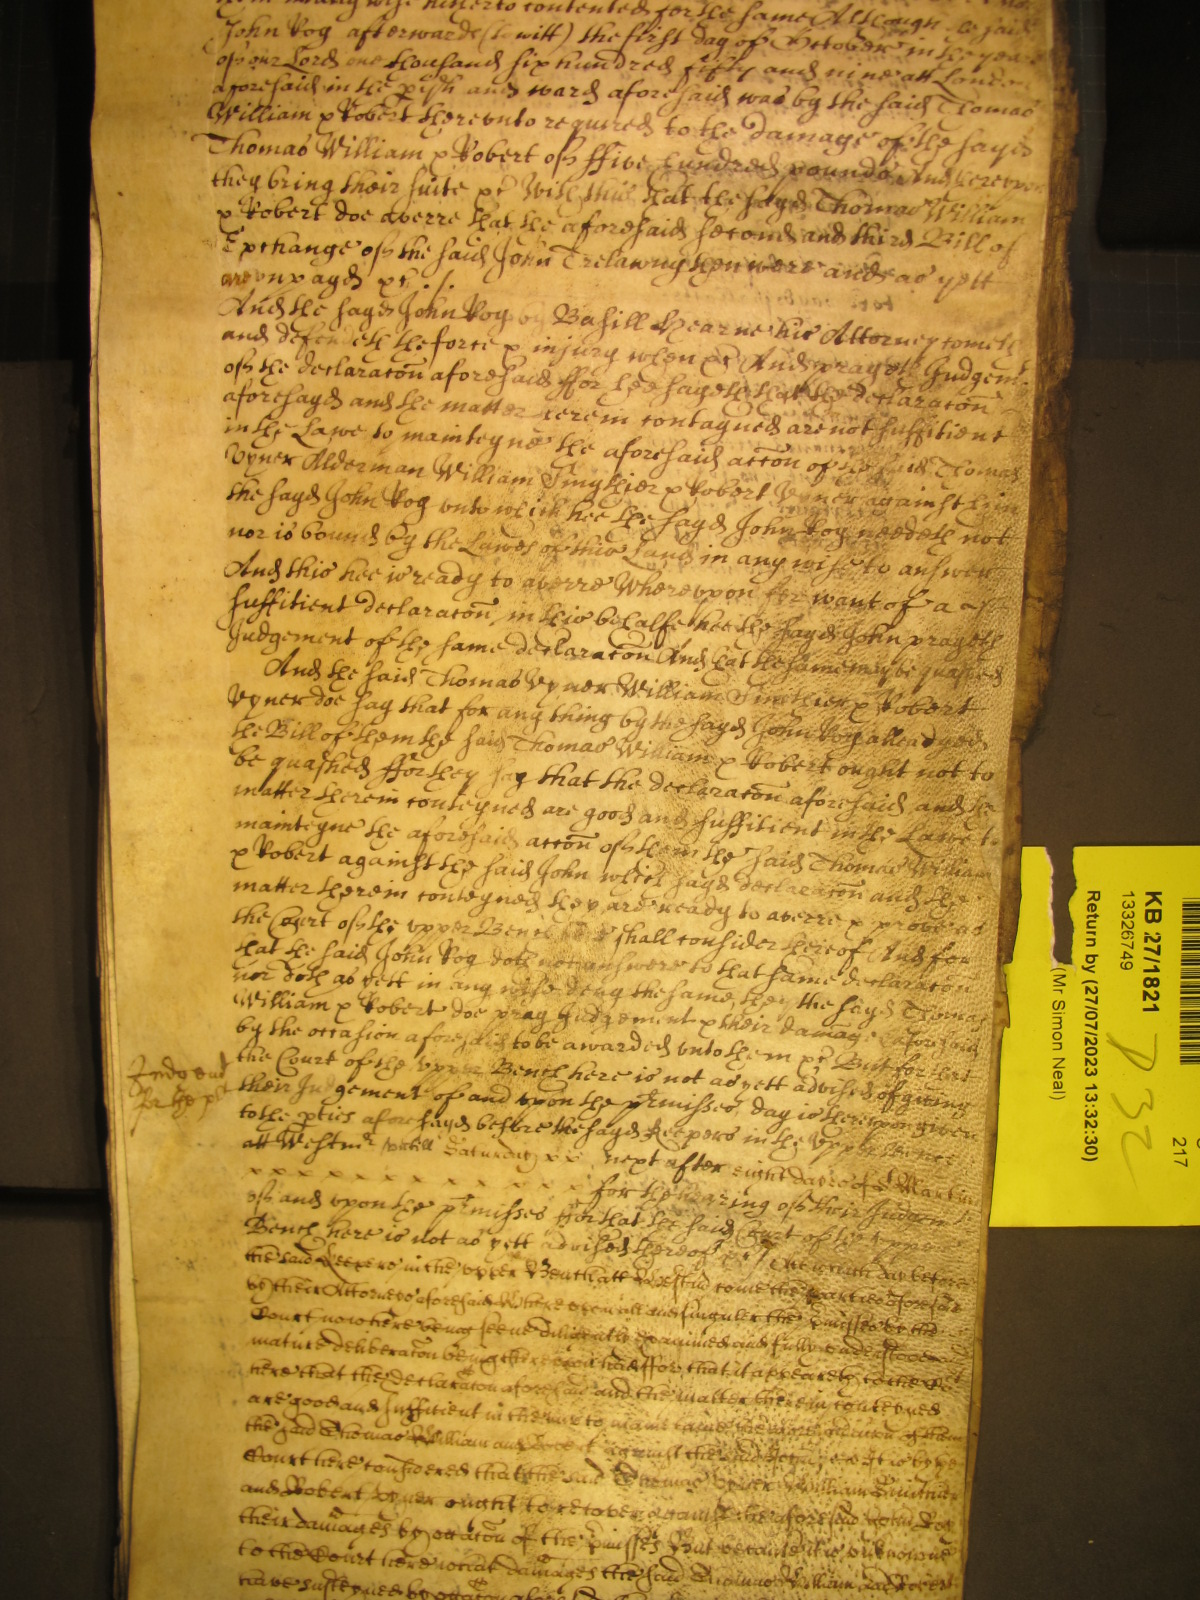 John Roy afterwards (to witt) the first day of October in the yeare
of our Lord one thousand six hundred fifty and nine att London
aforesaid in the pish and ward aforesaid was by the said Thomas
William & Robert therevnto required to the damage of the sayd
Thomas William & Robert of ffive hundred pounds And herevpon
they bring their suite &c With this that the sayd Thomas William
& Robert doe averre that the aforesaid second and third Bill of
Exchange of the said John Trelawny then were and as yett
are vnpayd &c ./.
And the sayd John Roy by Basill Hearne his Attorney cometh
and defendeth the force & injury when &c And prayeth Judgemt
of the declaracon aforesaid ffor hee sayeth that the declaracon
aforesayd and the matter therein contayned are not suffitient
in the Lawe to mainteyne the aforesaid accon of the said Thomas
Vyner Alderman William Smythier & Robert Vyner against him
the sayd John Roy vnto which hee the sayd John Roy needeth not
nor is bound by the Lawes of this Land in any wise to answer
And this hee is ready to averre Wherevpon for want of a
suffitient declaracon in this behalfe hee the sayd John prayeth
Judgement of the same declaracon And that the same may be quashed
And the said Thomas Vyner William Smithier & Robert
Vyner doe say that for any thing by the sayd John Roy alleadged
the Bill of them the said Thomas William & Robert ought not to
be quashed ffor they say that the declaracon aforesaid and the
matter therein conteyned are good and suffitient in the Lawe to
mainteyne the aforesaid accon of them the said Thomas William
& Robert against the said John which sayd declaracon and the
matter therein conteyned they are ready to averre & prove as
the Court of the vpper Bench shall consider thereof And for
that the said John Roy doth not answere to that same declaracon
nor doth as yett in any wise deny the same, they the sayd Thomas
William & Robert doe pray Judgement & their damages aforesaid
by the occasion aforesaid to be awarded vnto them &c But for that
the Court of the vpper Bench here is not as yett advised of giveing
their Judgement of and vpon the pmisses, day is therevpon given
to the pties aforesayd before the sayd Keepers in the Vpper Bench
att Westmr vntill Saturday xx next after eight dayes of St Martin
x x x x x x x x x x x for the hearing of their Judgemt
of and vpon the pmisses ffor that the said Court of the vpper
Bench here is not as yett advised thereof &c Att which day before
the said Keepers in the vpper Bench att Westmr come the parties aforesaid
by their Attorneys aforesaid Wherevpon all and singuler the pmisses by the
Court now here being seene diligently examined and fully vnderstood and
mature deliberacon being therevpon had ffor that it appeareth to the Court
here that the declaracon aforesaid and the matter therein conteyned
are good and suffitient in the lawe to maintaine the aforesaid accon of them
the said Thomas William and Robert against the said John It is by the
Court here considered that the said Thomas Vyner William Smithier
and Robert Vyner ought to recover against the aforesaid John Roy
their damages by occacon of the pmisses But because it is vnknowne
to the Court here what damages the said Thomas William and Robert
have susteyned by
Judgmt
for the plt
KB 27/1821
13326749
Return by (27/07/2023 13:32:30)
(Mr Simon Neal)
217